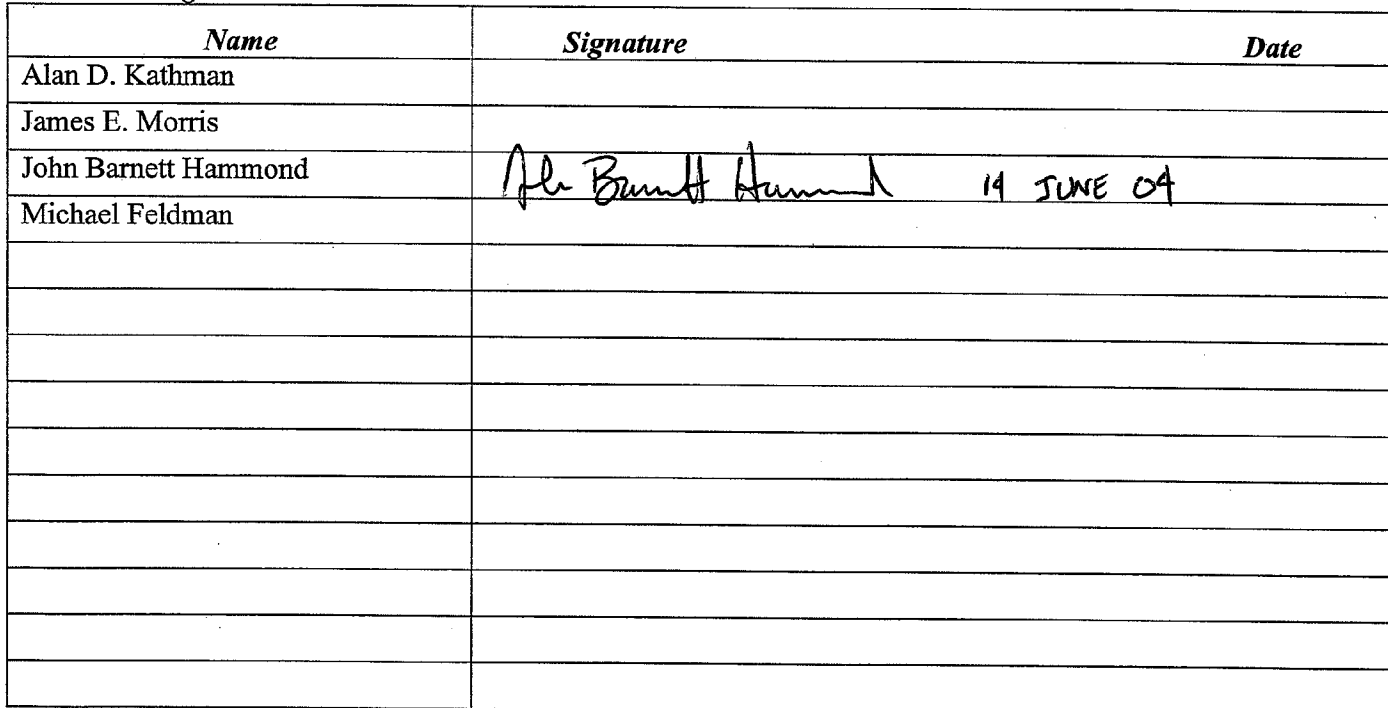 Name Signature Date
Alan D. Kathman
James E. Morris
John Barnett Hammond John Barnett Hammond 14 JUNE 04
Michael Feldman